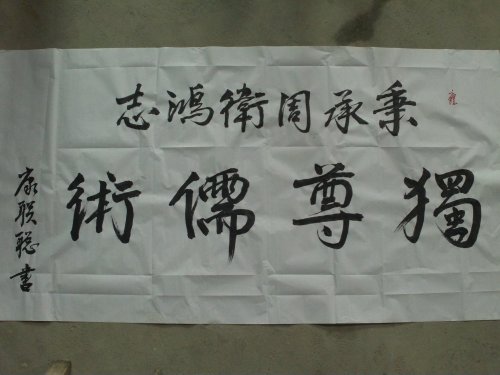 秉承周衛鴻志
獨尊儒術
康联聪書